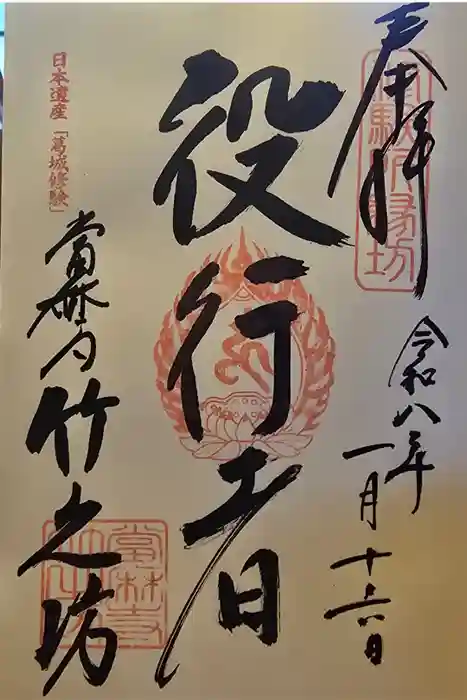 奉拝
令和八年
一月十六日
役行者
日本遺産「葛城修験」
當麻寺竹之坊